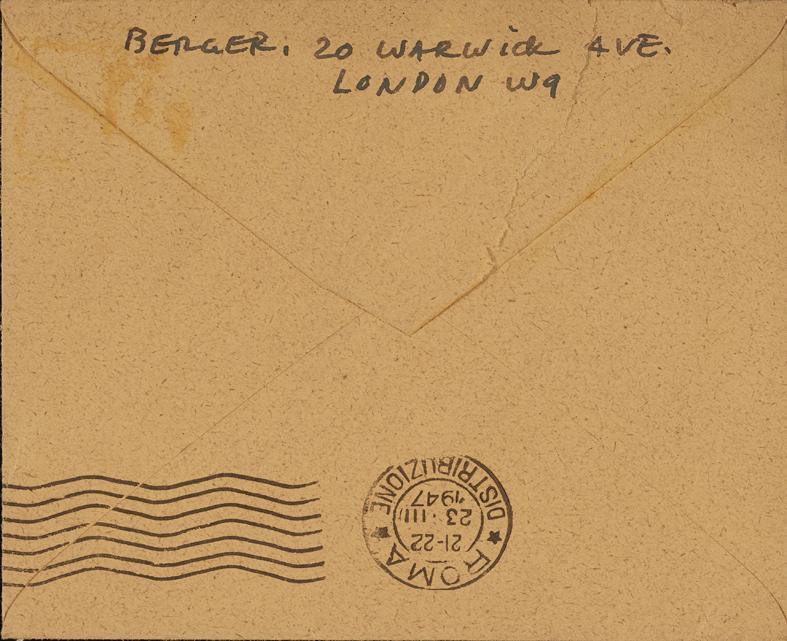 BERGER. 20 WARWICK AVE.
LONDON W9
ROMA
21-22
23 · III
1947
DISTRIBUZIONE